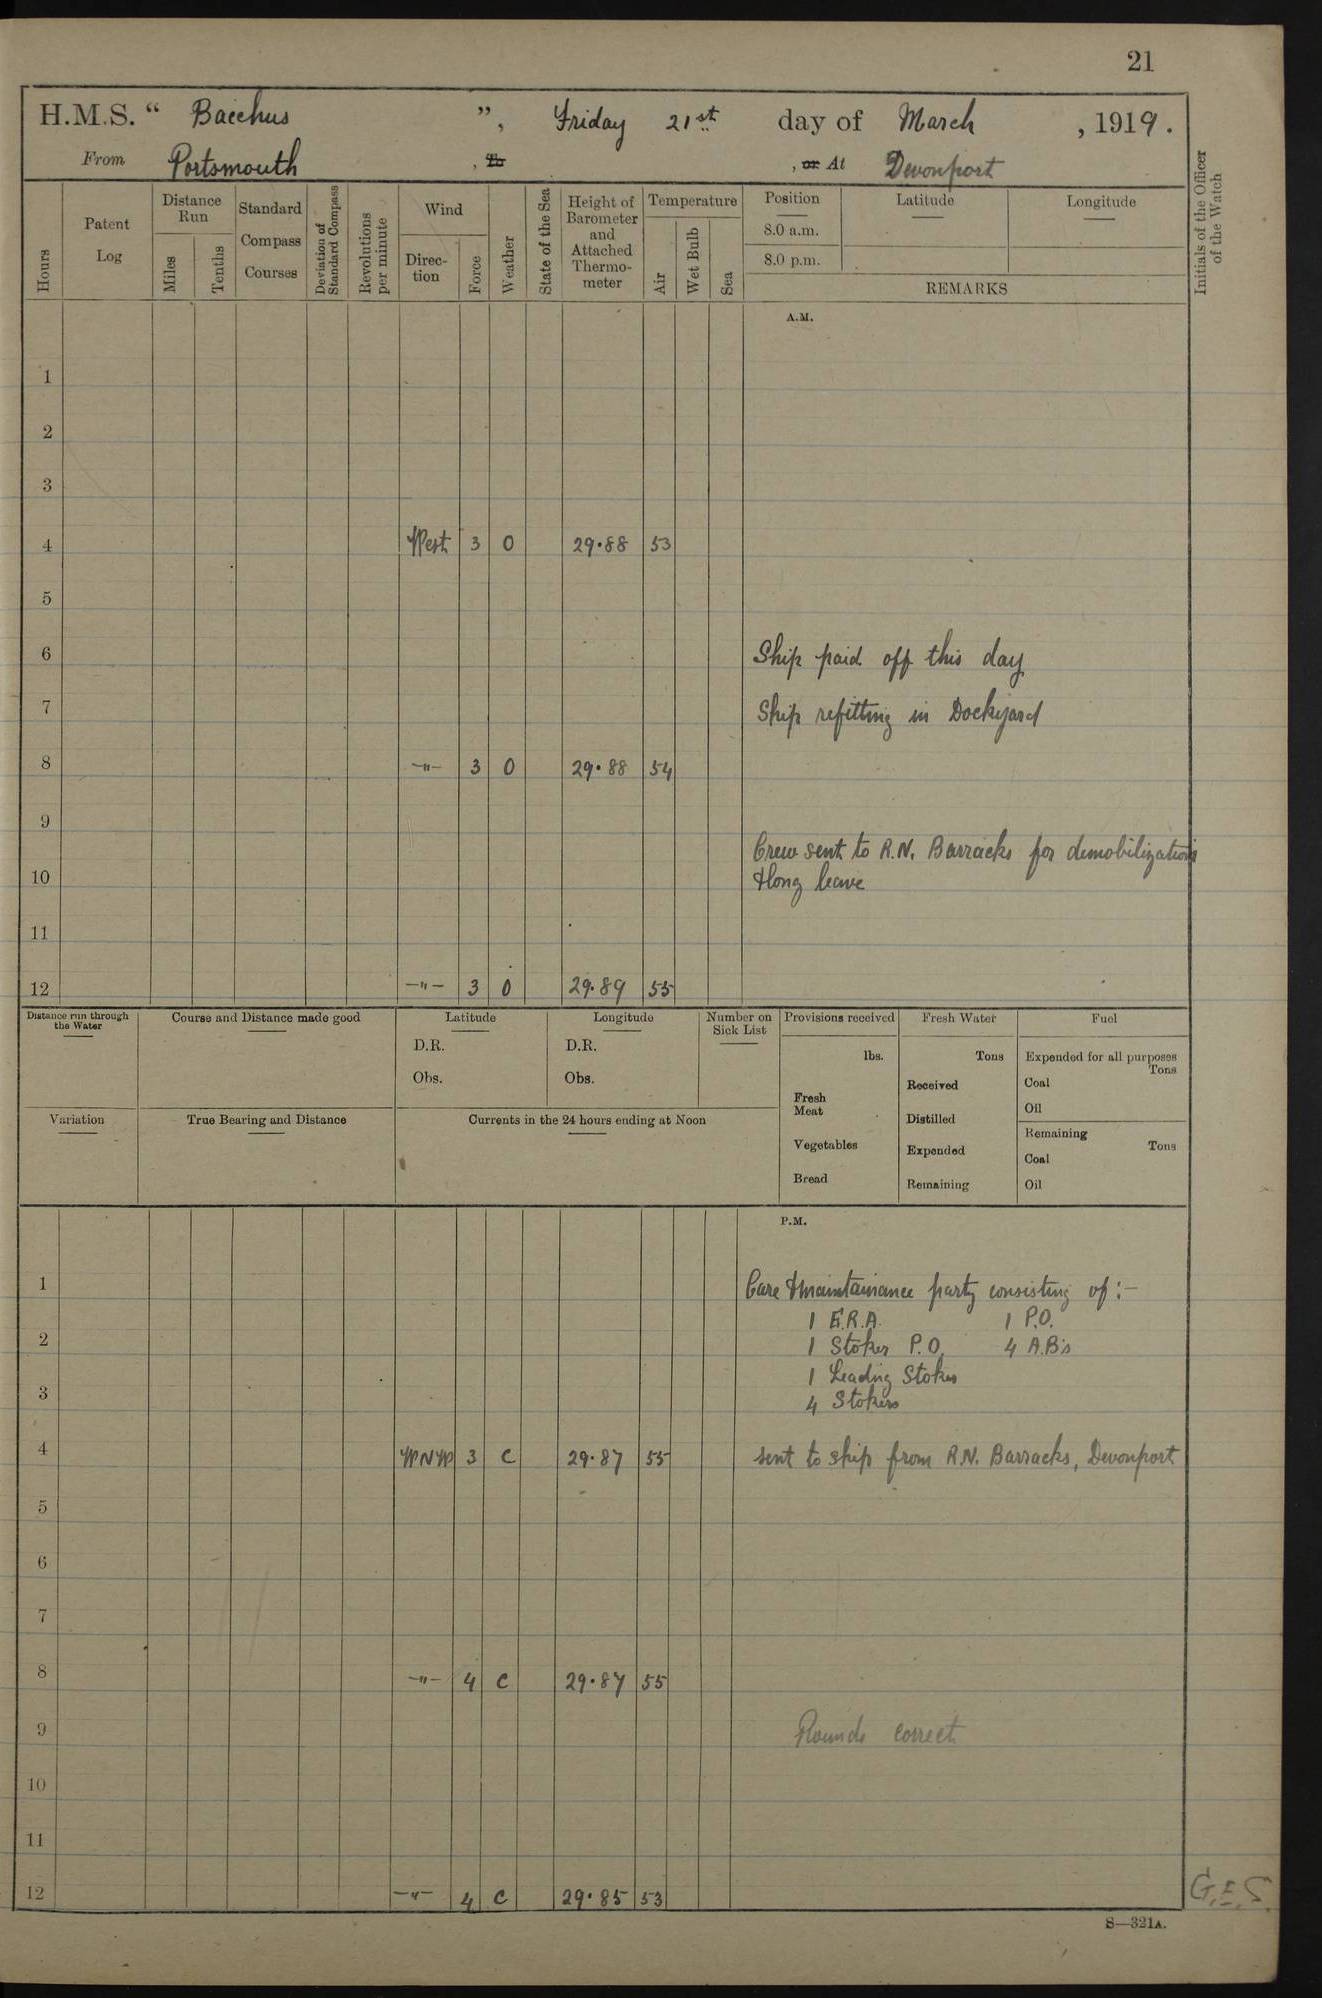 21
H.M.S. “ Bacchus ”, Friday 21st day of March , 1919.
From Portsmouth , To , or At Devonport
Hours
Patent Log
Distance Run
Miles
Tenths
Standard Compass Courses
Deviation of Standard Compass
Revolutions per minute
Wind
Direction
Force
Weather
State of the Sea
Height of Barometer and Attached Thermometer
Temperature
Air
Wet Bulb
Sea
Position Latitude Longitude
8.0 a.m.
8.0 p.m.
REMARKS
Initials of the Officer of the Watch
A.M.
1
2
3
4 West 3 O 29.88 53
5
6 Ship paid off this day
7 Ship refitting in Dockyard
8 -"- 3 O 29.88 54
9
Crew sent to R.N. Barracks for demobilization
10 & long leave
11
12 -"- 3 O 29.89 55
Distance run through the Water
Course and Distance made good
Latitude
D.R.
Obs.
Longitude
D.R.
Obs.
Number on Sick List
Provisions received
lbs.
Fresh Meat
Vegetables
Bread
Fresh Water
Tons
Received
Distilled
Expended
Remaining
Fuel
Expended for all purposes
Tons
Coal
Oil
Remaining
Tons
Coal
Oil
Variation
True Bearing and Distance
Currents in the 24 hours ending at Noon
P.M.
1 Care & maintainance party consisting of :-
1 E.R.A. 1 P.O.
2 1 Stoker P.O. 4 A.B's
1 Leading Stoker
3 4 Stokers
4 WNW 3 C 29.87 55 sent to ship from R.N. Barracks, Devonport
5
6
7
8 -"- 4 C 29.87 55
9 Rounds correct
10
11
12 -"- 4 C 29.85 53 G.E.S.
S—321A.